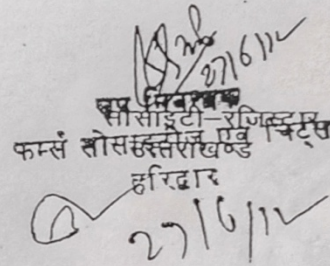 27/6/12
उप निबन्धक
सोसाइटी-रजिस्ट्रार
फर्म्स सोसाइटीज एवं चिट्स
उत्तराखण्ड
हरिद्वार
27/6/12